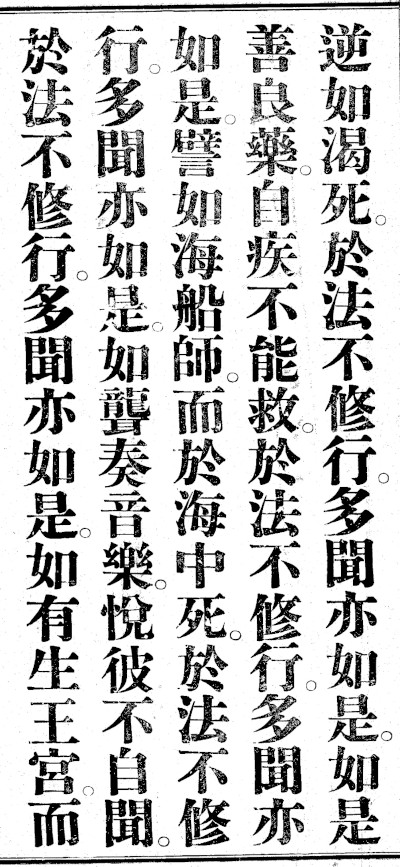 逆如渴死。於法不修行。多聞亦如是。如是
善良藥。自疾不能救。於法不修行。多聞亦
如是。譬如海船師。而於海中死。於法不修
行。多聞亦如是。如聾奏音樂。悅彼不自聞。
於法不修行。多聞亦如是。如有生王宮。而